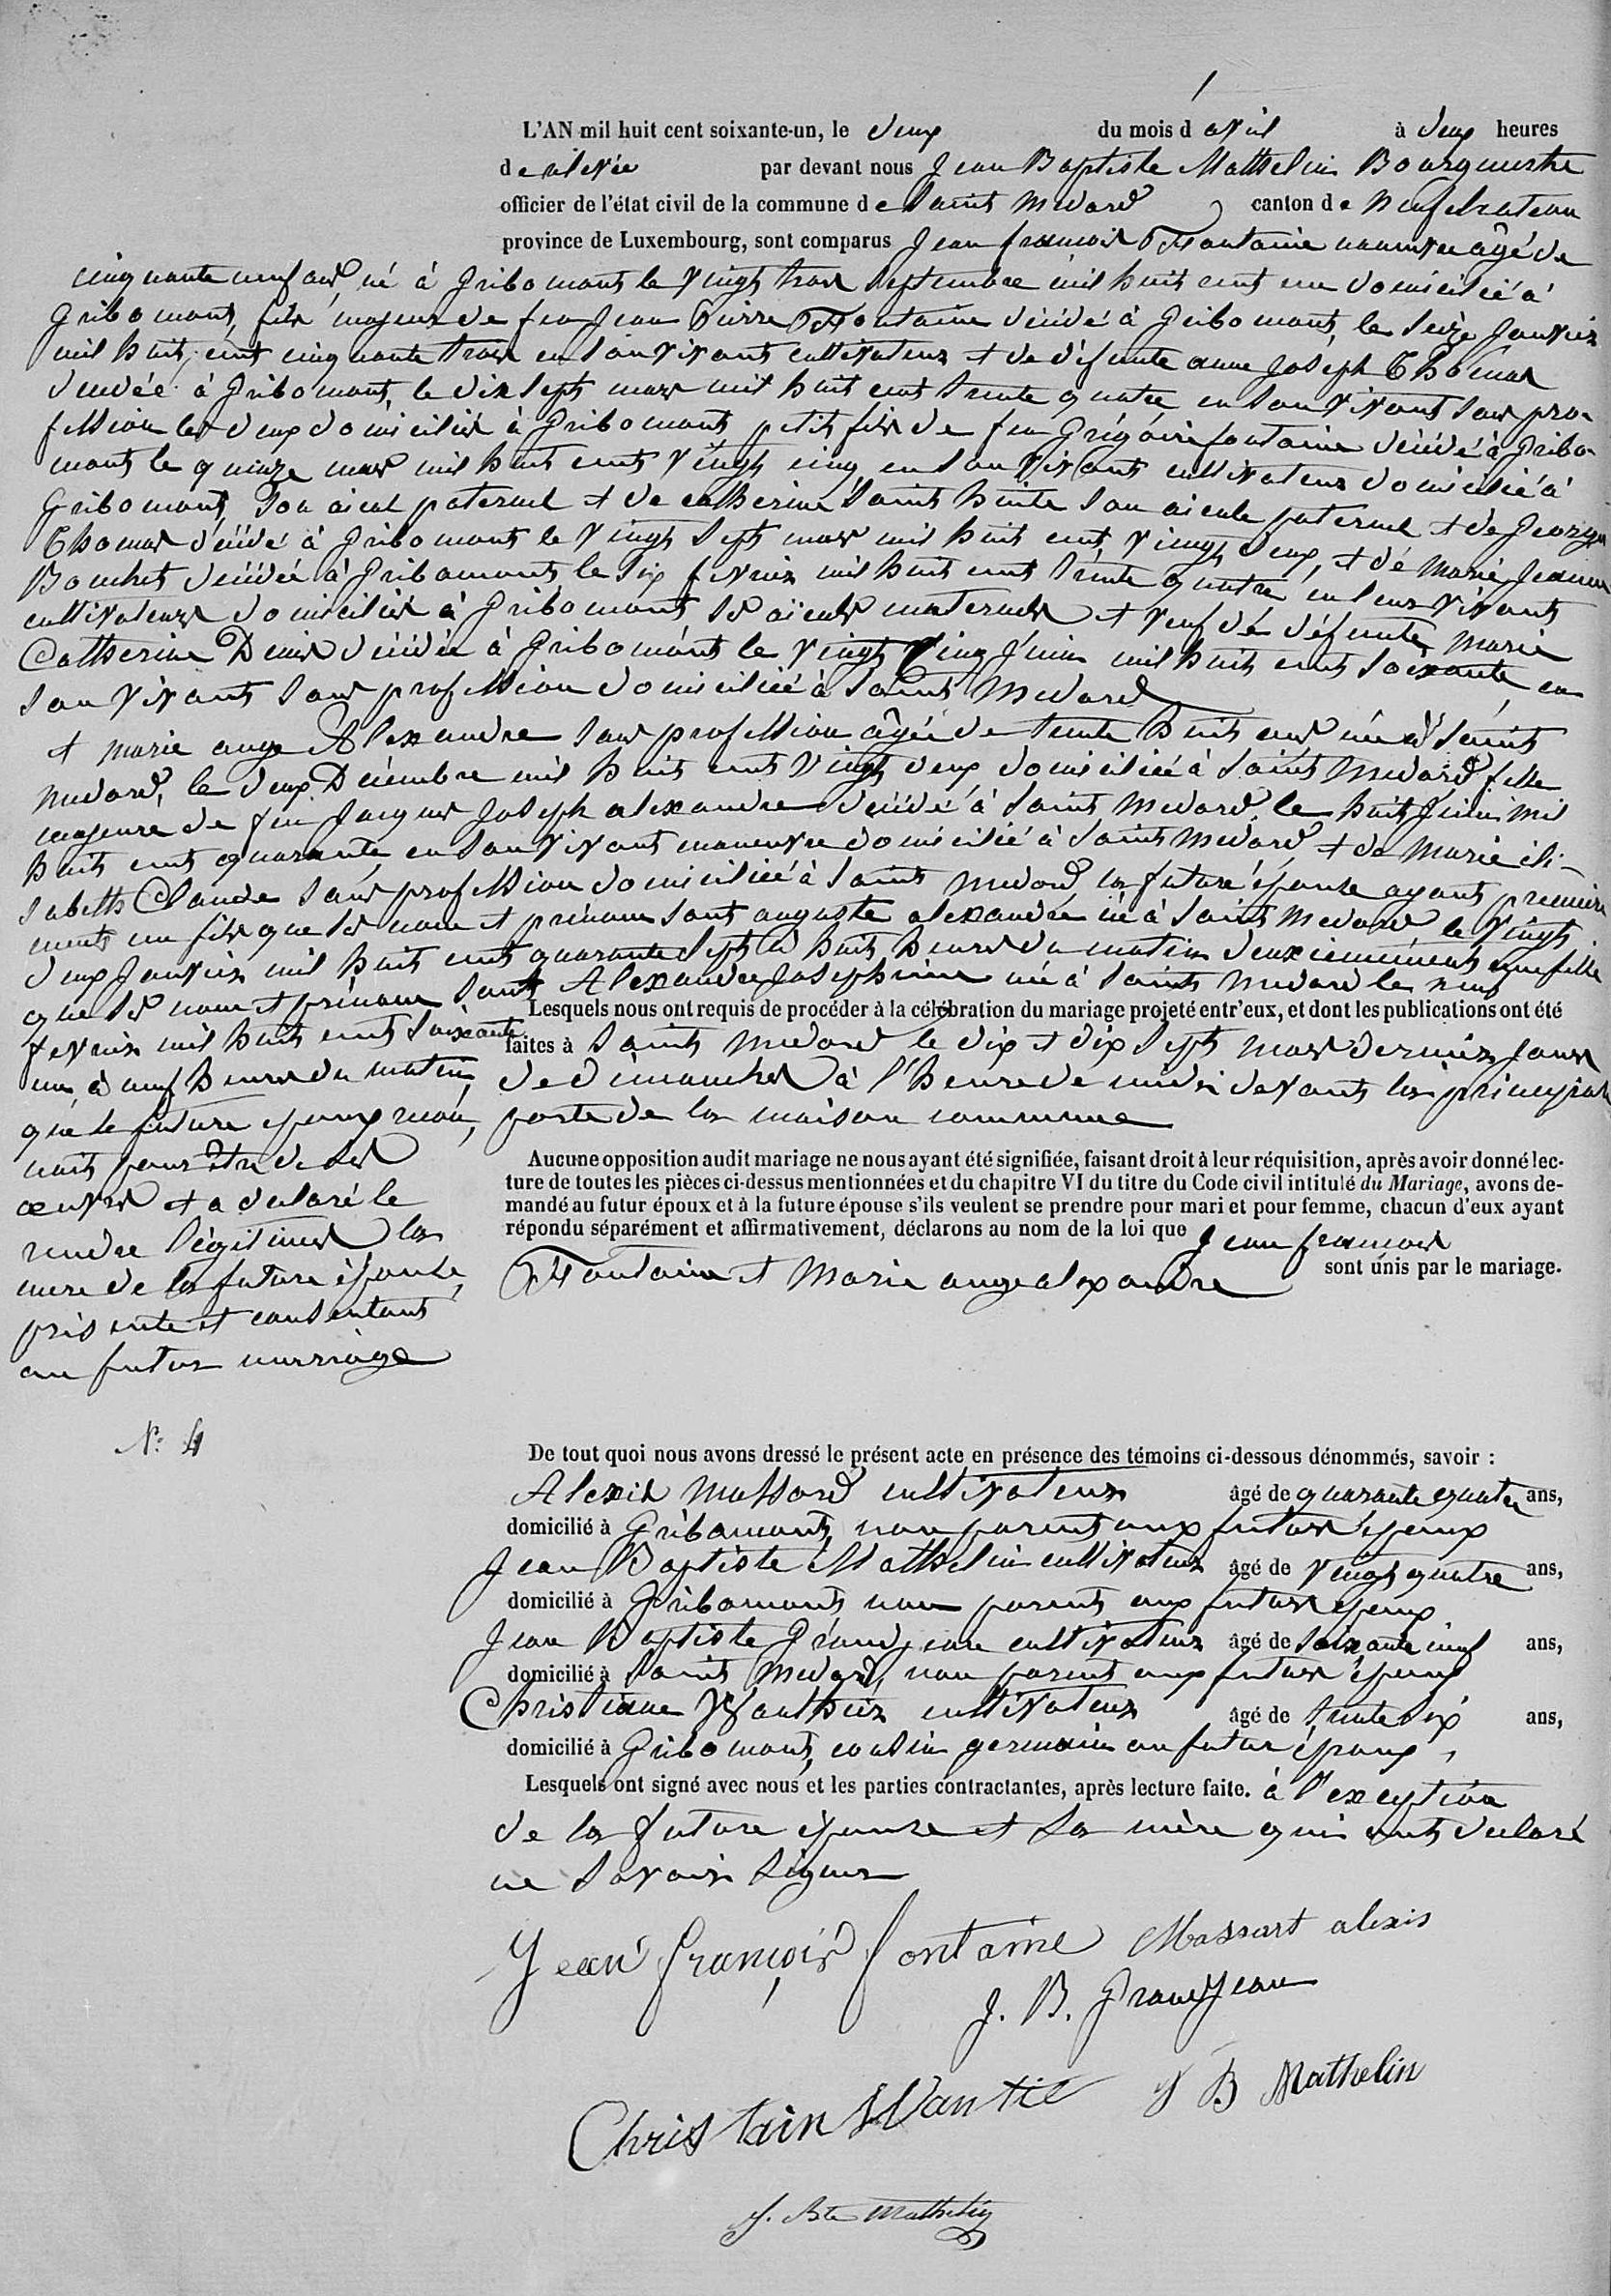 L'AN mil huit cent soixante-un, le deux du mois d avril à deux heures
de relevée par devant nous Jean Baptiste Mathelin Bourgmestre
officier de l'état civil de la commune de Saint Medard canton de Neufchateau
province de Luxembourg, sont comparus Jean françois Fontaine manœuvre âgé de
cinquante neuf ans, né à Gribomont le vingt trois septembre mil huit cent un domicilié à
Gribomont, fils majeur de feu Jean Pierre Fontaine décédé à Gribomont, le seize Janvier
mil huit cent cinquante trois en son vivant cultivateur et de défunte anne Joseph Thomas
décédée à Gribomont, le dix sept mars mil huit cent trente quatre en son vivant sans pro-
fession les deux domiciliés à Gribomont petit fils de feu Grégoire fontaine décédé à Gribo-
mont le quinze mars mil huit cent vingt cinq en son vivant cultivateur domicilié à
Gribomont, son aieul paternel et de catherine Saint son aieule paternel et de George
Thomas décédé à Gribomont le vingt sept mars mil huit cent vingt deux, et de Marie Jeanne
Bouchet décédée à Gribomont le six fevrier mil huit cent trente quatre en leur vivant
cultivateurs domiciliés à Gribomont ses aïeuls maternels et veuf de défunte Marie
Catherine Denis décédée à Gribomont le vingt cinq Juin mil huit cent soixante en
son vivant sans profession domiciliée à Saint Medard
et marie ange Alexandre sans profession âgée de trente huit ans née à Saint
Medard, le deux Décembre mil huit cent vingt deux domiciliée à Saint Medard fille
majeure de feu Jacques Joseph alexandre décédé à Saint Medard le huit Juin mil
huit cent quarante en son vivant manœuvre domicilié à Saint Medard et de Marie éli-
sabeth Claude sans profession domiciliée à Saint Medard la future épouse ayant premiere
ment un fils que ses nom et prénom sont auguste alexandre né à Saint Medard le vingt
deux Janvier mil huit cent quarante sept à huit heures du matin deuxiemement une fille
que ses nom et prénom sont Alexandre Josephine né à Saint Medard le neuf
Lesquels nous ont requis de procéder à la célébration du mariage projeté entr'eux, et dont les publications ont été
fevrier mil huit cent soixante
faites à Saint Medard le dix et dix sept mars dernier Jours
un à neuf heures du matin
de dimanches à l'heure de midi devant la principale
que le future epoux recon,
porte de la maison commune
nait pour être de ses
œuvres et a déclaré le
rendre légitimes la
mere de la future épouse,
présente et consentant
au futur marriage
Aucune opposition audit mariage ne nous ayant été signifiée, faisant droit à leur réquisition, après avoir donné lec-
ture de toutes les pièces ci-dessus mentionnées et du chapitre VI du titre du Code civil intitulé du Mariage, avons de-
mandé au futur époux et à la future épouse s'ils veulent se prendre pour mari et pour femme, chacun d'eux ayant
répondu séparément et affirmativement, déclarons au nom de la loi que Jean françois
Fontaine et Marie ange alexandre sont unis par le mariage.
N° 4
De tout quoi nous avons dressé le présent acte en présence des témoins ci-dessous dénommés, savoir :
Alexis Massard cultivateur âgé de quarante quatre ans,
domicilié à Gribomont, non parent aux futurs époux
Jean Baptiste Mathelin cultivateur âgé de vingt quatre ans,
domicilié à Gribomont non parent aux futurs époux
Jean Baptiste Grandjean cultivateur âgé de soixante neuf ans,
domicilié à Saint Medard, non parent aux futurs époux
Christiane Wauthier cultivateur âgé de trente six ans,
domicilié à Gribomont, cousin germain au futur époux,
Lesquels ont signé avec nous et les parties contractantes, après lecture faite. à l'exception
de la future épouse et sa mère qui ont déclaré
ne savoir signer
Jean françois fontaine Massart alexis
J. B. Grandjean
Christain Wautié J B Mathelin
J. Bte Mathelin